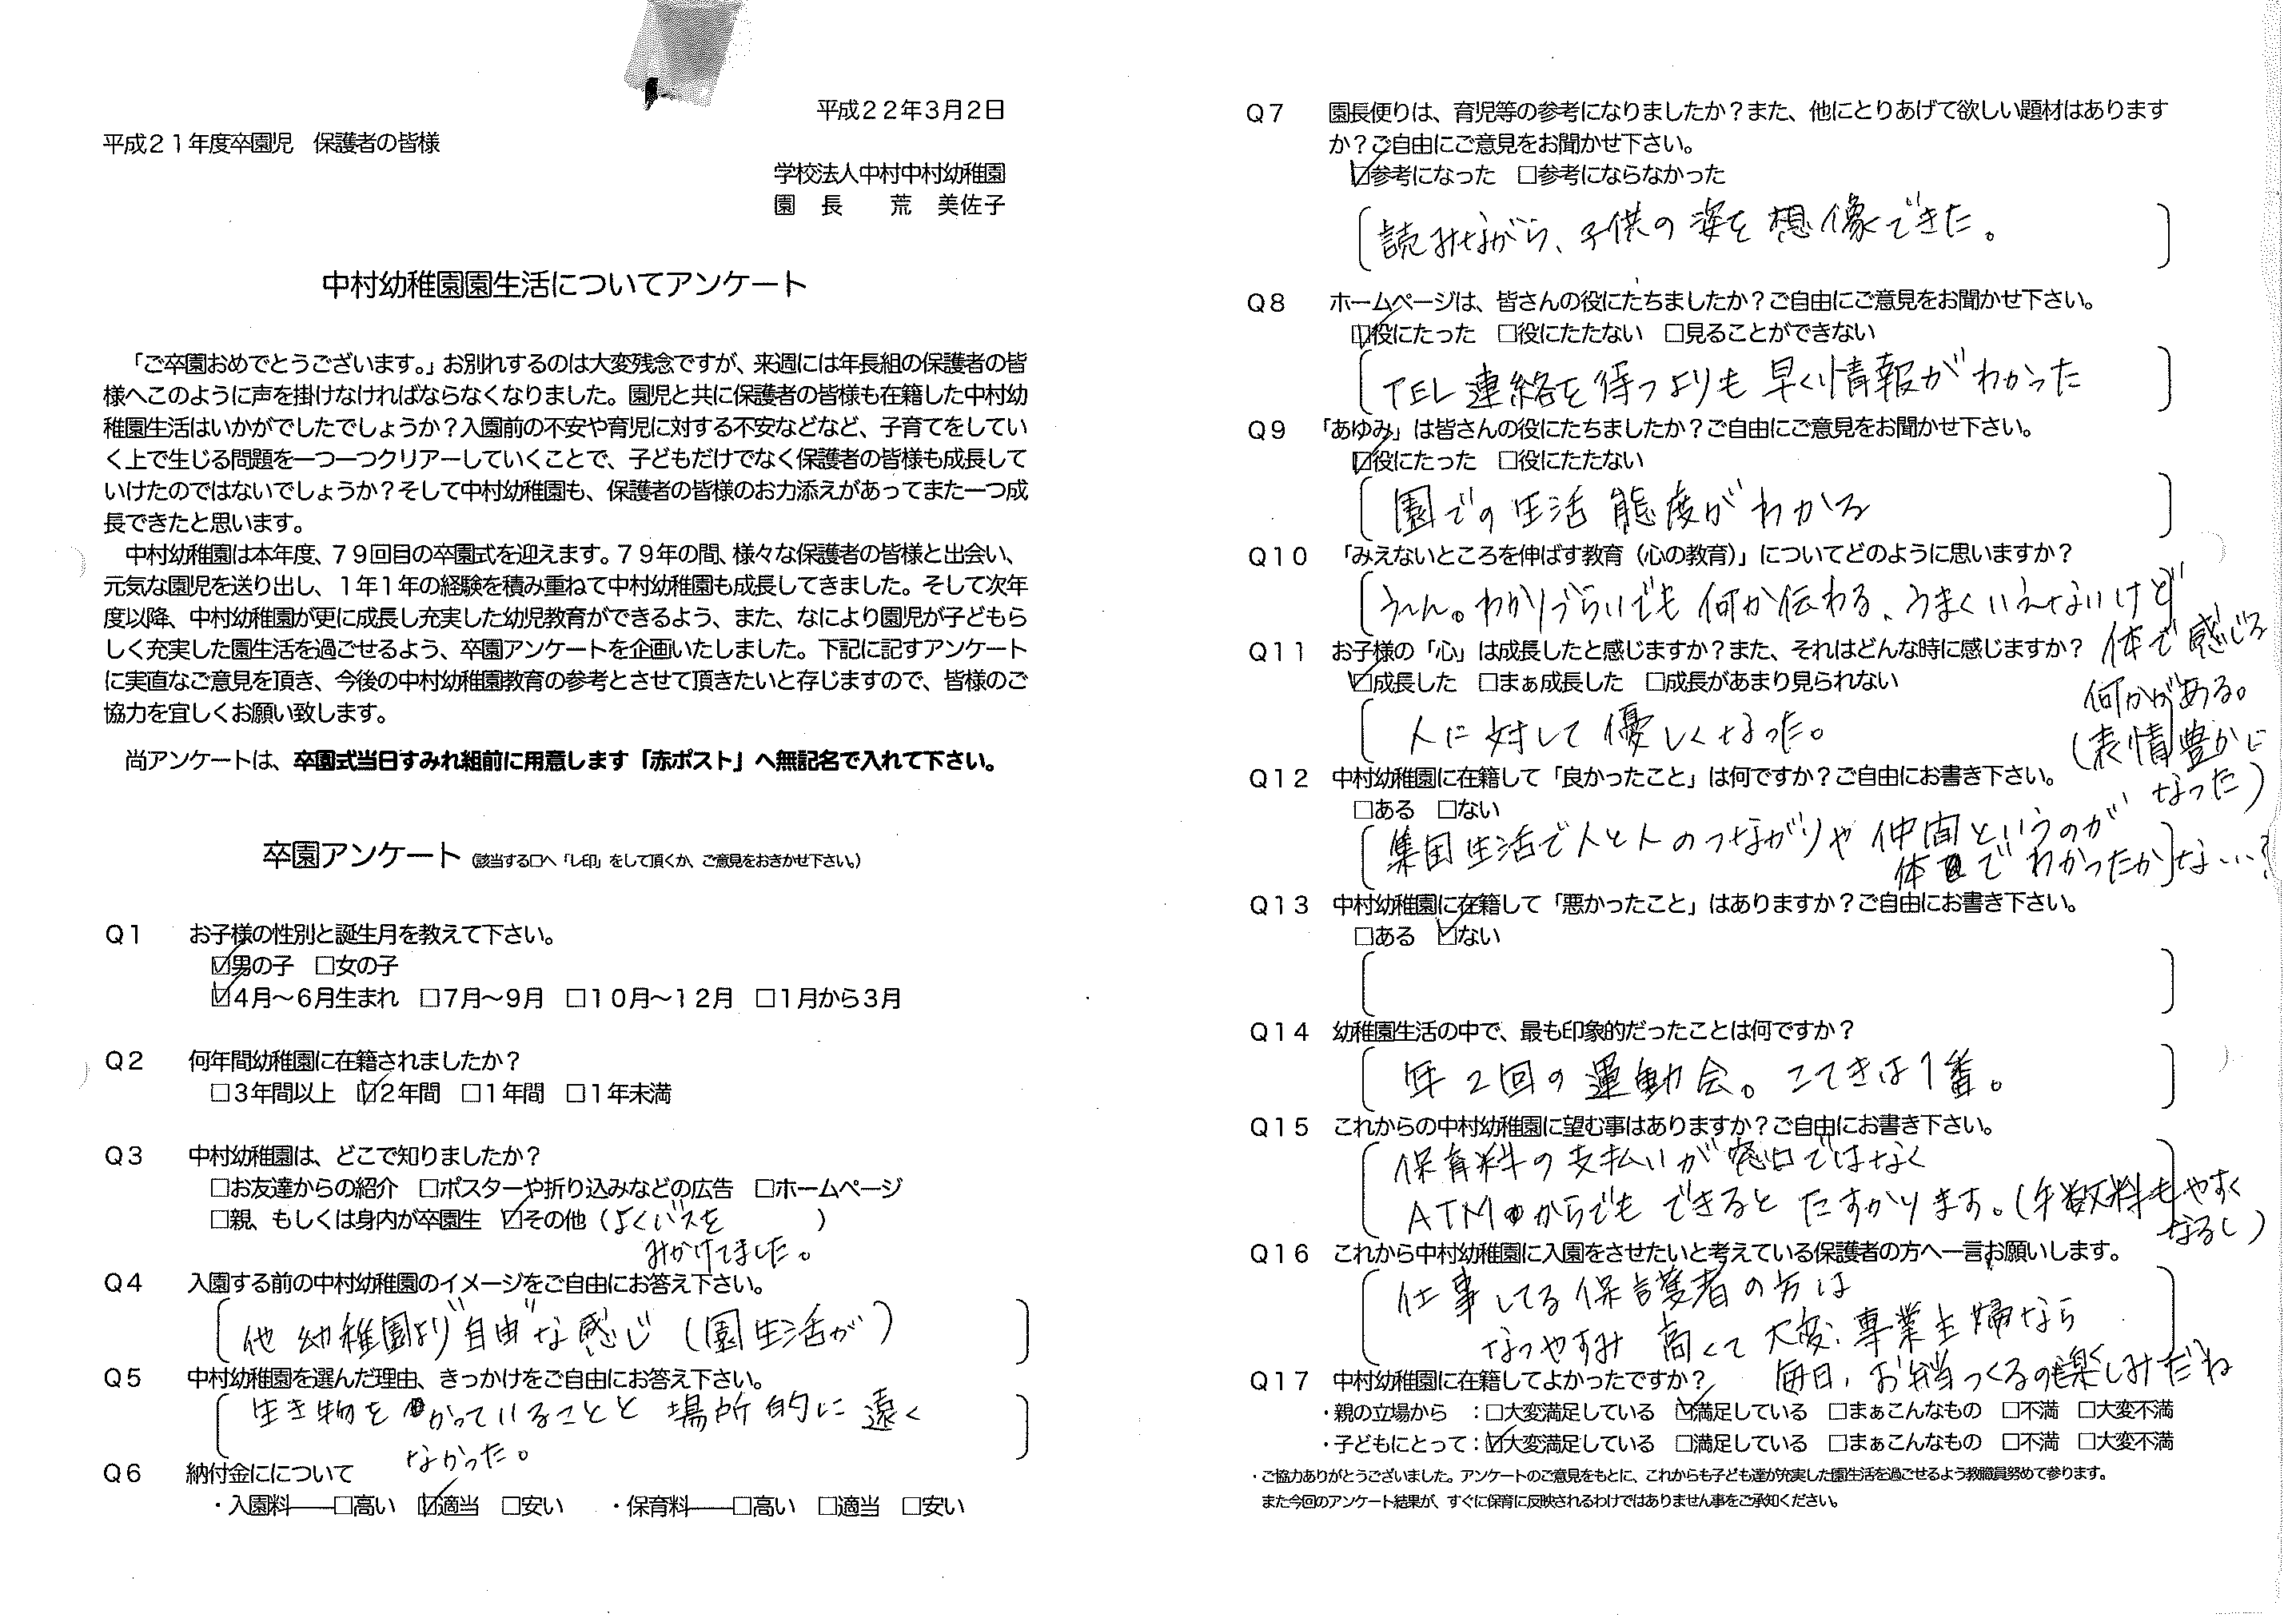 平成２２年３月２日
平成２１年度卒園児　保護者の皆様
学校法人中村中村幼稚園
園　長　　荒　美佐子
中村幼稚園園生活についてアンケート
「ご卒園おめでとうございます。」お別れするのは大変残念ですが、来週には年長組の保護者の皆
様へこのように声を掛けなければならなくなりました。園児と共に保護者の皆様も在籍した中村幼
稚園生活はいかがでしたでしょうか？入園前の不安や育児に対する不安などなど、子育てをしてい
く上で生じる問題を一つ一つクリアーしていくことで、子どもだけでなく保護者の皆様も成長して
いけたのではないでしょうか？そして中村幼稚園も、保護者の皆様のお力添えがあってまた一つ成
長できたと思います。
中村幼稚園は本年度、７９回目の卒園式を迎えます。７９年の間、様々な保護者の皆様と出会い、
元気な園児を送り出し、１年１年の経験を積み重ねて中村幼稚園も成長してきました。そして次年
度以降、中村幼稚園が更に成長し充実した幼児教育ができるよう、また、なにより園児が子どもら
しく充実した園生活を過ごせるよう、卒園アンケートを企画いたしました。下記に記すアンケート
に実直なご意見を頂き、今後の中村幼稚園教育の参考とさせて頂きたいと存じますので、皆様のご
協力を宜しくお願い致します。
尚アンケートは、卒園式当日すみれ組前に用意します「赤ポスト」へ無記名で入れて下さい。
卒園アンケート（該当する□へ「レ印」をして頂くか、ご意見をおきかせ下さい。）
Ｑ１　お子様の性別と誕生月を教えて下さい。
☑男の子　□女の子
☑４月～６月生まれ　□７月～９月　□１０月～１２月　□１月から３月
Ｑ２　何年間幼稚園に在籍されましたか？
□３年間以上　☑２年間　□１年間　□１年未満
Ｑ３　中村幼稚園は、どこで知りましたか？
□お友達からの紹介　□ポスターや折り込みなどの広告　□ホームページ
□親、もしくは身内が卒園生　☑その他（よくバスを　　　）
みかけてました。
Ｑ４　入園する前の中村幼稚園のイメージをご自由にお答え下さい。
他幼稚園より"自由"な感じ（園生活が）
Ｑ５　中村幼稚園を選んだ理由、きっかけをご自由にお答え下さい。
生き物をかっていることと場所的に遠く
なかった。
Ｑ６　納付金にについて
・入園料――□高い　☑適当　□安い　　・保育料――□高い　□適当　□安い
Ｑ７　園長便りは、育児等の参考になりましたか？また、他にとりあげて欲しい題材はあります
か？ご自由にご意見をお聞かせ下さい。
☑参考になった　□参考にならなかった
読みながら、子供の姿を想像できた。
Ｑ８　ホームページは、皆さんの役にたちましたか？ご自由にご意見をお聞かせ下さい。
☑役にたった　□役にたたない　□見ることができない
TEL連絡を待つよりも早く情報がわかった
Ｑ９　「あゆみ」は皆さんの役にたちましたか？ご自由にご意見をお聞かせ下さい。
☑役にたった　□役にたたない
園での生活態度がわかる
Ｑ１０　「みえないところを伸ばす教育（心の教育）」についてどのように思いますか？
うーん。わかりづらいでも何か伝わる、うまくいえないけど
体で感じる
何かがある。
Ｑ１１　お子様の「心」は成長したと感じますか？また、それはどんな時に感じますか？
☑成長した　□まぁ成長した　□成長があまり見られない
人に対して優しくなった。
（表情豊かに
なった）
Ｑ１２　中村幼稚園に在籍して「良かったこと」は何ですか？ご自由にお書き下さい。
□ある　□ない
集団生活で人と人のつながりや仲間というのが
体でわかったかな…？
Ｑ１３　中村幼稚園に在籍して「悪かったこと」はありますか？ご自由にお書き下さい。
□ある　☑ない
Ｑ１４　幼稚園生活の中で、最も印象的だったことは何ですか？
年２回の運動会。こてきは１番。
Ｑ１５　これからの中村幼稚園に望む事はありますか？ご自由にお書き下さい。
保育料の支払いが窓口ではなく
ATMからでもできるとたすかります。（手数料もやすく
なるし）
Ｑ１６　これから中村幼稚園に入園をさせたいと考えている保護者の方へ一言お願いします。
仕事してる保護者の方は
なつやすみ高くて大変；専業主婦なら
毎日、お弁当つくるのも楽しみだね
Ｑ１７　中村幼稚園に在籍してよかったですか？
・親の立場から　：□大変満足している　☑満足している　□まぁこんなもの　□不満　□大変不満
・子どもにとって：☑大変満足している　□満足している　□まぁこんなもの　□不満　□大変不満
・ご協力ありがとうございました。アンケートのご意見をもとに、これからも子ども達が充実した園生活を過ごせるよう教職員努めて参ります。
また今回のアンケート結果が、すぐに保育に反映されるわけではありません事をご承知ください。